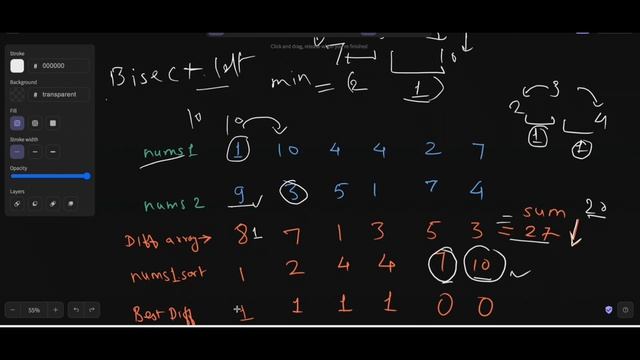 Stroke
Click and drag, release when you're finished
000000
Background
transparent
Fill
Stroke width
Opacity
Layers
55%
7 10
Bisect.left min = 6 1
3
2 4
1 1
10 10
nums1 1 10 4 4 2 7
nums2 9 3 5 1 7 4
sum 20
Diff array → 8 1 7 1 3 5 3 = 27
nums1sort 1 2 4 4 7 10
Best Diff 1 1 1 1 0 0